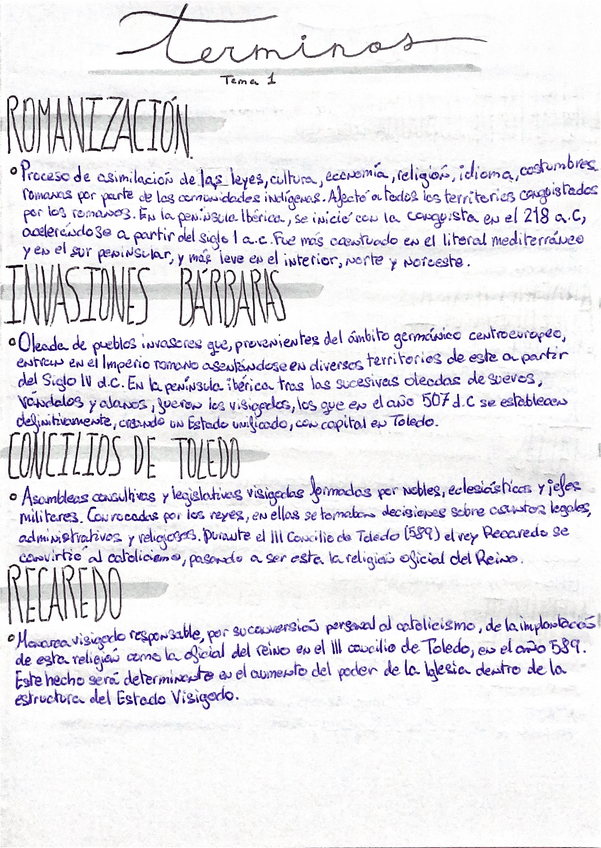 Terminos
Tema 1
ROMANIZACIÓN
Proceso de asimilación de las leyes, cultura, economía, religión, idioma, costumbres
romanas por parte de las comunidades indígenas. Afectó a todos los territorios conquistados
por los romanos. En la península Ibérica, se inició con la conquista en el 218 a.C,
acelerándose a partir del siglo I a.c. Fue más acentuado en el litoral mediterráneo
y en el sur peninsular, y más leve en el interior, norte y noroeste.
INVASIONES BÁRBARAS
Oleada de pueblos invasores que, provenientes del ámbito germánico centroeuropeo,
entran en el Imperio romano asentándose en diversos territorios de este a partir
del Siglo IV d.C. En la península ibérica, tras las sucesivas oleadas de suevos,
vándalos y alanos, fueron los visigodos, los que en el año 507 d.C se establecen
definitivamente, creando un Estado unificado, con capital en Toledo.
CONCILIOS DE TOLEDO
Asambleas consultivas y legislativas visigodas formadas por nobles, eclesiásticos y jefes
militares. Convocadas por los reyes, en ellas se tomaban decisiones sobre asuntos legales,
administrativos y religiosos. Durante el III Concilio de Toledo (589) el rey Recaredo se
convirtió al catolicismo, pasando a ser esta la religión oficial del Reino.
RECAREDO
Monarca visigodo responsable, por su conversión personal al catolicismo, de la implantación
de esta religión como la oficial del reino en el III concilio de Toledo, en el año 589.
Este hecho será determinante en el aumento del poder de la Iglesia dentro de la
estructura del Estado Visigodo.